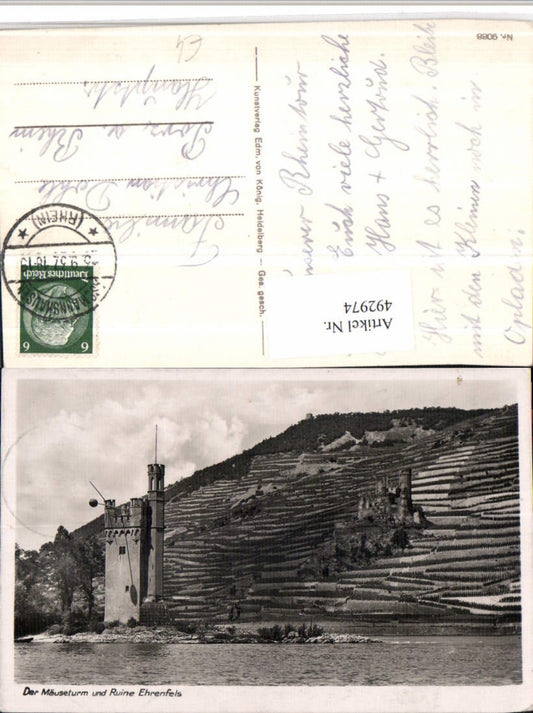 Nr. 9088
Hier ist es herrlich. Bleib
mit den Kleinen noch in
Opladen.
unserer Rheintour
Euch viele herzliche
Hans + Gertrud.
Artikel Nr.
492974
Kunstverlag Edm. von König, Heidelberg — Ges. gesch.
Familie
Christian
a Rhein
Hauptstr.
(RHEIN)
Deutsches Reich
6 6
Der Mäuseturm und Ruine Ehrenfels